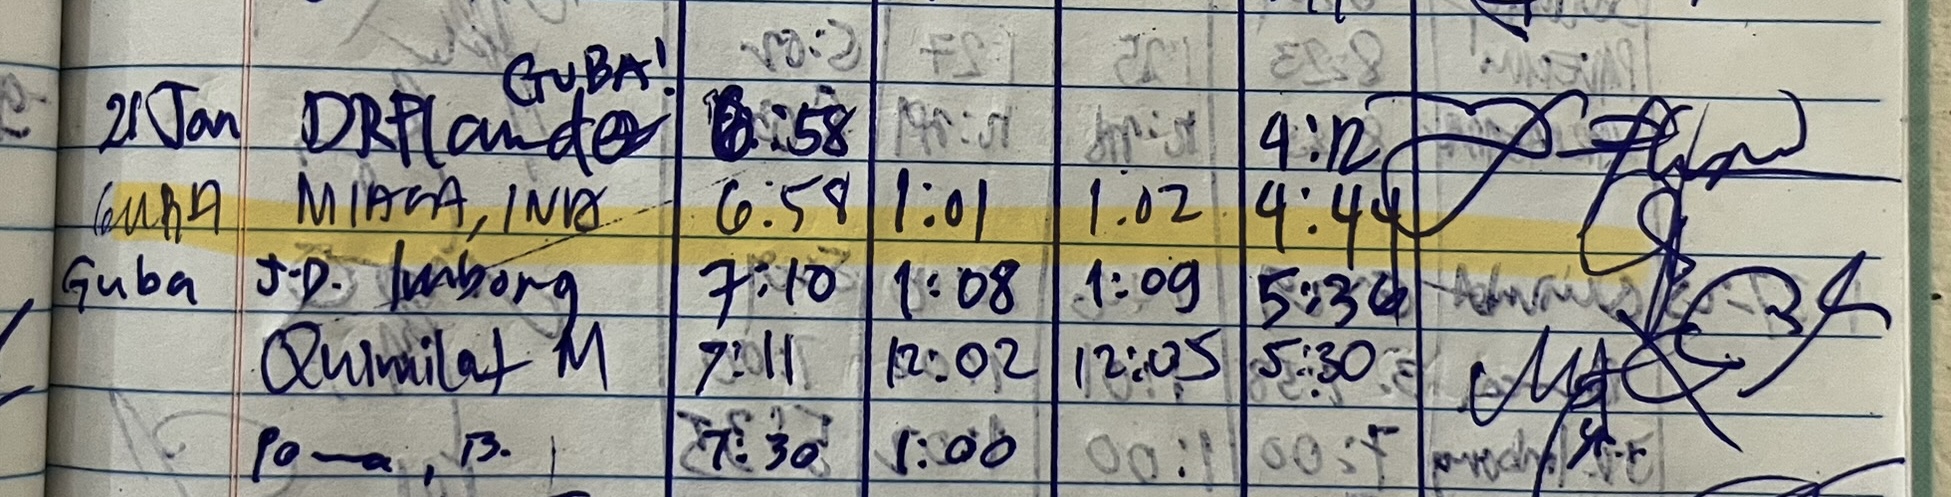 GUBA!
21 Jan DRFlandez 6:58 4:12
GUBA MIAGA, INA 6:58 1:01 1:02 4:44
Guba J.D. Imborg 7:10 1:08 1:09 5:36
Quimilat M 7:11 12:02 12:05 5:30
B. 7:30 1:00